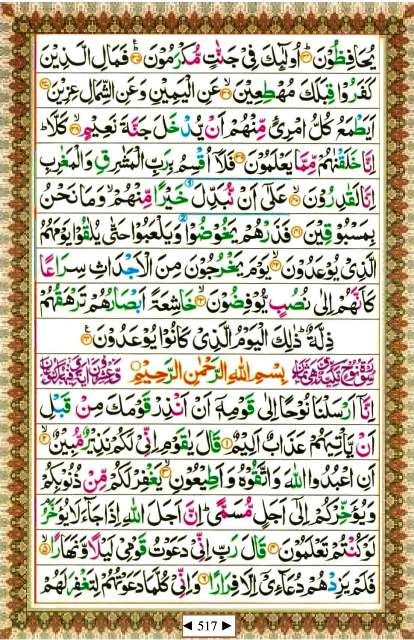 يُحَافِظُوۡنَ ؕ‏﴿۳۴﴾ اُولٰٓٮِٕكَ فِىۡ جَنّٰتٍ مُّكۡرَمُوۡنَ ؕ‏﴿۳۵﴾ فَمَالِ الَّذِيۡنَ
كَفَرُوۡا قِبَلَكَ مُهۡطِعِيۡنَۙ‏﴿۳۶﴾ عَنِ الۡيَمِيۡنِ وَعَنِ الشِّمَالِ عِزِيۡنَ‏﴿۳۷﴾
اَيَطۡمَعُ كُلُّ امۡرِىٴٍ مِّنۡهُمۡ اَنۡ يُّدۡخَلَ جَنَّةَ نَعِيۡمٍۙ‏﴿۳۸﴾ كَلَّا ؕ
اِنَّا خَلَقۡنٰهُمۡ مِّمَّا يَعۡلَمُوۡنَ‏﴿۳۹﴾ فَلَاۤ اُقۡسِمُ بِرَبِّ الۡمَشٰرِقِ وَالۡمَغٰرِبِ
اِنَّا لَقٰدِرُوۡنَۙ‏﴿۴۰﴾ عَلٰٓى اَنۡ نُّبَدِّلَ خَيۡرًا مِّنۡهُمۡۙ وَمَا نَحۡنُ
بِمَسۡبُوۡقِيۡنَ‏﴿۴۱﴾ فَذَرۡهُمۡ يَخُوۡضُوۡا وَيَلۡعَبُوۡا حَتّٰى يُلٰقُوۡا يَوۡمَهُمُ
الَّذِىۡ يُوۡعَدُوۡنَۙ‏﴿۴۲﴾ يَوۡمَ يَخۡرُجُوۡنَ مِنَ الۡاَجۡدَاثِ سِرَاعًا
كَاَنَّهُمۡ اِلٰى نُصُبٍ يُّوۡفِضُوۡنَۙ‏﴿۴۳﴾ خَاشِعَةً اَبۡصَارُهُمۡ تَرۡهَقُهُمۡ
ذِلَّةٌ ؕ ذٰلِكَ الۡيَوۡمُ الَّذِىۡ كَانُوۡا يُوۡعَدُوۡنَ‏﴿۴۴﴾
بِسۡمِ اللّٰهِ الرَّحۡمٰنِ الرَّحِيۡمِ
اِنَّاۤ اَرۡسَلۡنَا نُوۡحًا اِلٰى قَوۡمِهٖۤ اَنۡ اَنۡذِرۡ قَوۡمَكَ مِنۡ قَبۡلِ
اَنۡ يَّاۡتِيَهُمۡ عَذَابٌ اَلِيۡمٌ‏﴿۱﴾ قَالَ يٰقَوۡمِ اِنِّىۡ لَكُمۡ نَذِيۡرٌ مُّبِيۡنٌۙ‏﴿۲﴾
اَنِ اعۡبُدُوا اللّٰهَ وَاتَّقُوۡهُ وَاَطِيۡعُوۡنِۙ‏﴿۳﴾ يَغۡفِرۡ لَكُمۡ مِّنۡ ذُنُوۡبِكُمۡ
وَيُؤَخِّرۡكُمۡ اِلٰٓى اَجَلٍ مُّسَمًّىؕ اِنَّ اَجَلَ اللّٰهِ اِذَا جَآءَ لَا يُؤَخَّرُۘ
لَوۡ كُنۡتُمۡ تَعۡلَمُوۡنَ‏﴿۴﴾ قَالَ رَبِّ اِنِّىۡ دَعَوۡتُ قَوۡمِىۡ لَيۡلًا وَّنَهَارًاۙ‏﴿۵﴾
فَلَمۡ يَزِدۡهُمۡ دُعَآءِىۡۤ اِلَّا فِرَارًا‏﴿۶﴾ وَاِنِّىۡ كُلَّمَا دَعَوۡتُهُمۡ لِتَغۡفِرَ لَهُمۡ
◄ 517 ►